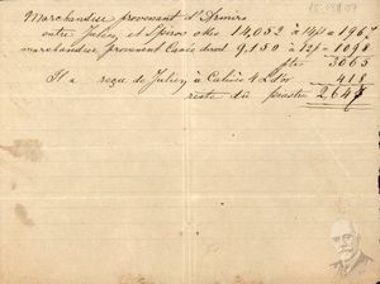 Marchandise provenant d'Armiro
entre Julien et Spiro okes 14,052 à 14/p = 1967
marchandise provenant Canée okes 9.150 à 12/= 1098
ptes 3065
Il a reçu de Julien à 4 L d'or 418
reste dû piastres 2,647